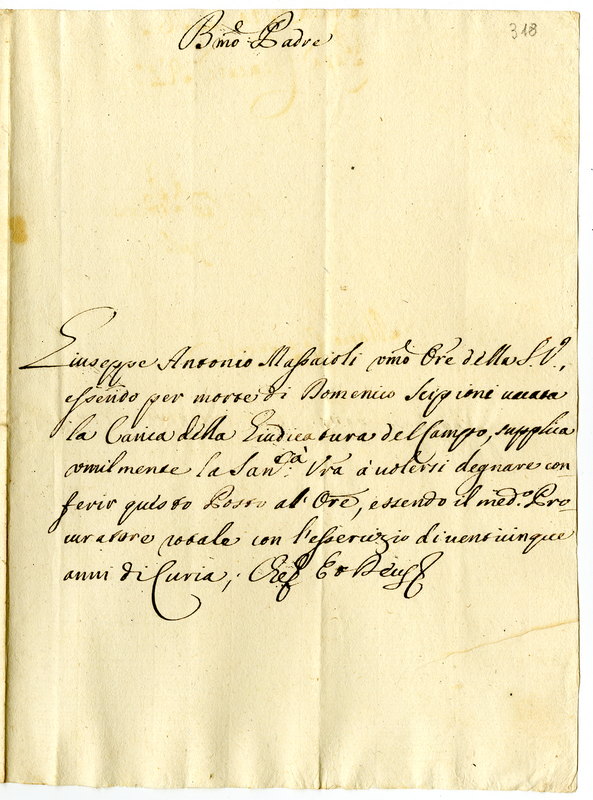 318
Bmo Padre
Giuseppe Antonio Massaioli vmo Ore della S. Va,
essendo per morte di Domenico Scipioni uacata
la Carica della Giudicatura del Campo, supplica
vmilmente la Santà: Vra à uolersi degnare con-
ferir questo Posto al' Ore, essendo il medo. Pro-
curatore rotale con l'essercizio di uenticinque
anni di Curia; Che